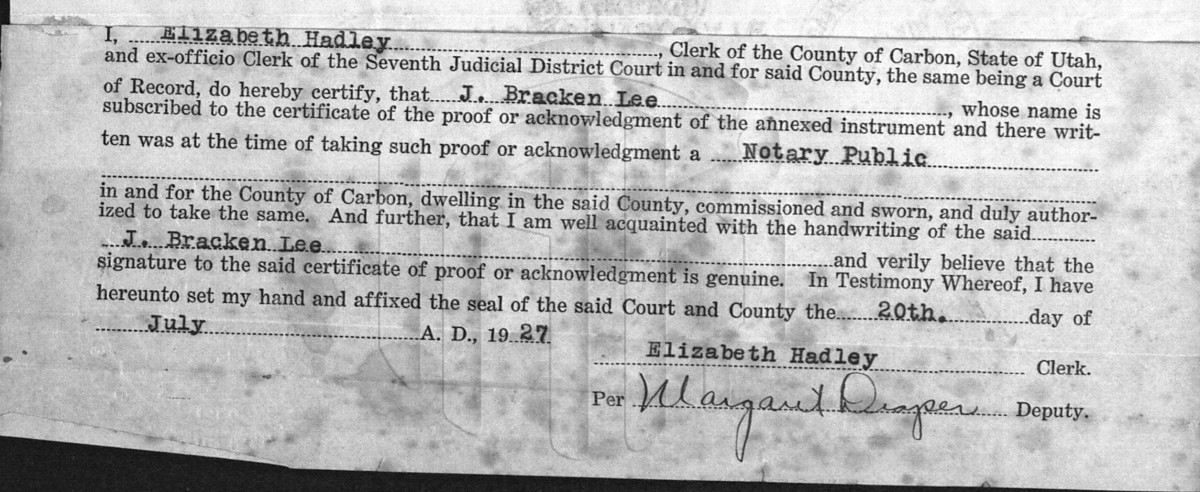 I, Elizabeth Hadley, Clerk of the County of Carbon, State of Utah,
and ex-officio Clerk of the Seventh Judicial District Court in and for said County, the same being a Court
of Record, do hereby certify, that J. Bracken Lee, whose name is
subscribed to the certificate of the proof or acknowledgment of the annexed instrument and there writ-
ten was at the time of taking such proof or acknowledgment a Notary Public
in and for the County of Carbon, dwelling in the said County, commissioned and sworn, and duly author-
ized to take the same. And further, that I am well acquainted with the handwriting of the said
J. Bracken Lee and verily believe that the
signature to the said certificate of proof or acknowledgment is genuine. In Testimony Whereof, I have
hereunto set my hand and affixed the seal of the said Court and County the 20th. day of
July A. D., 1927.
Elizabeth Hadley Clerk.
Per Margaret Draper Deputy.